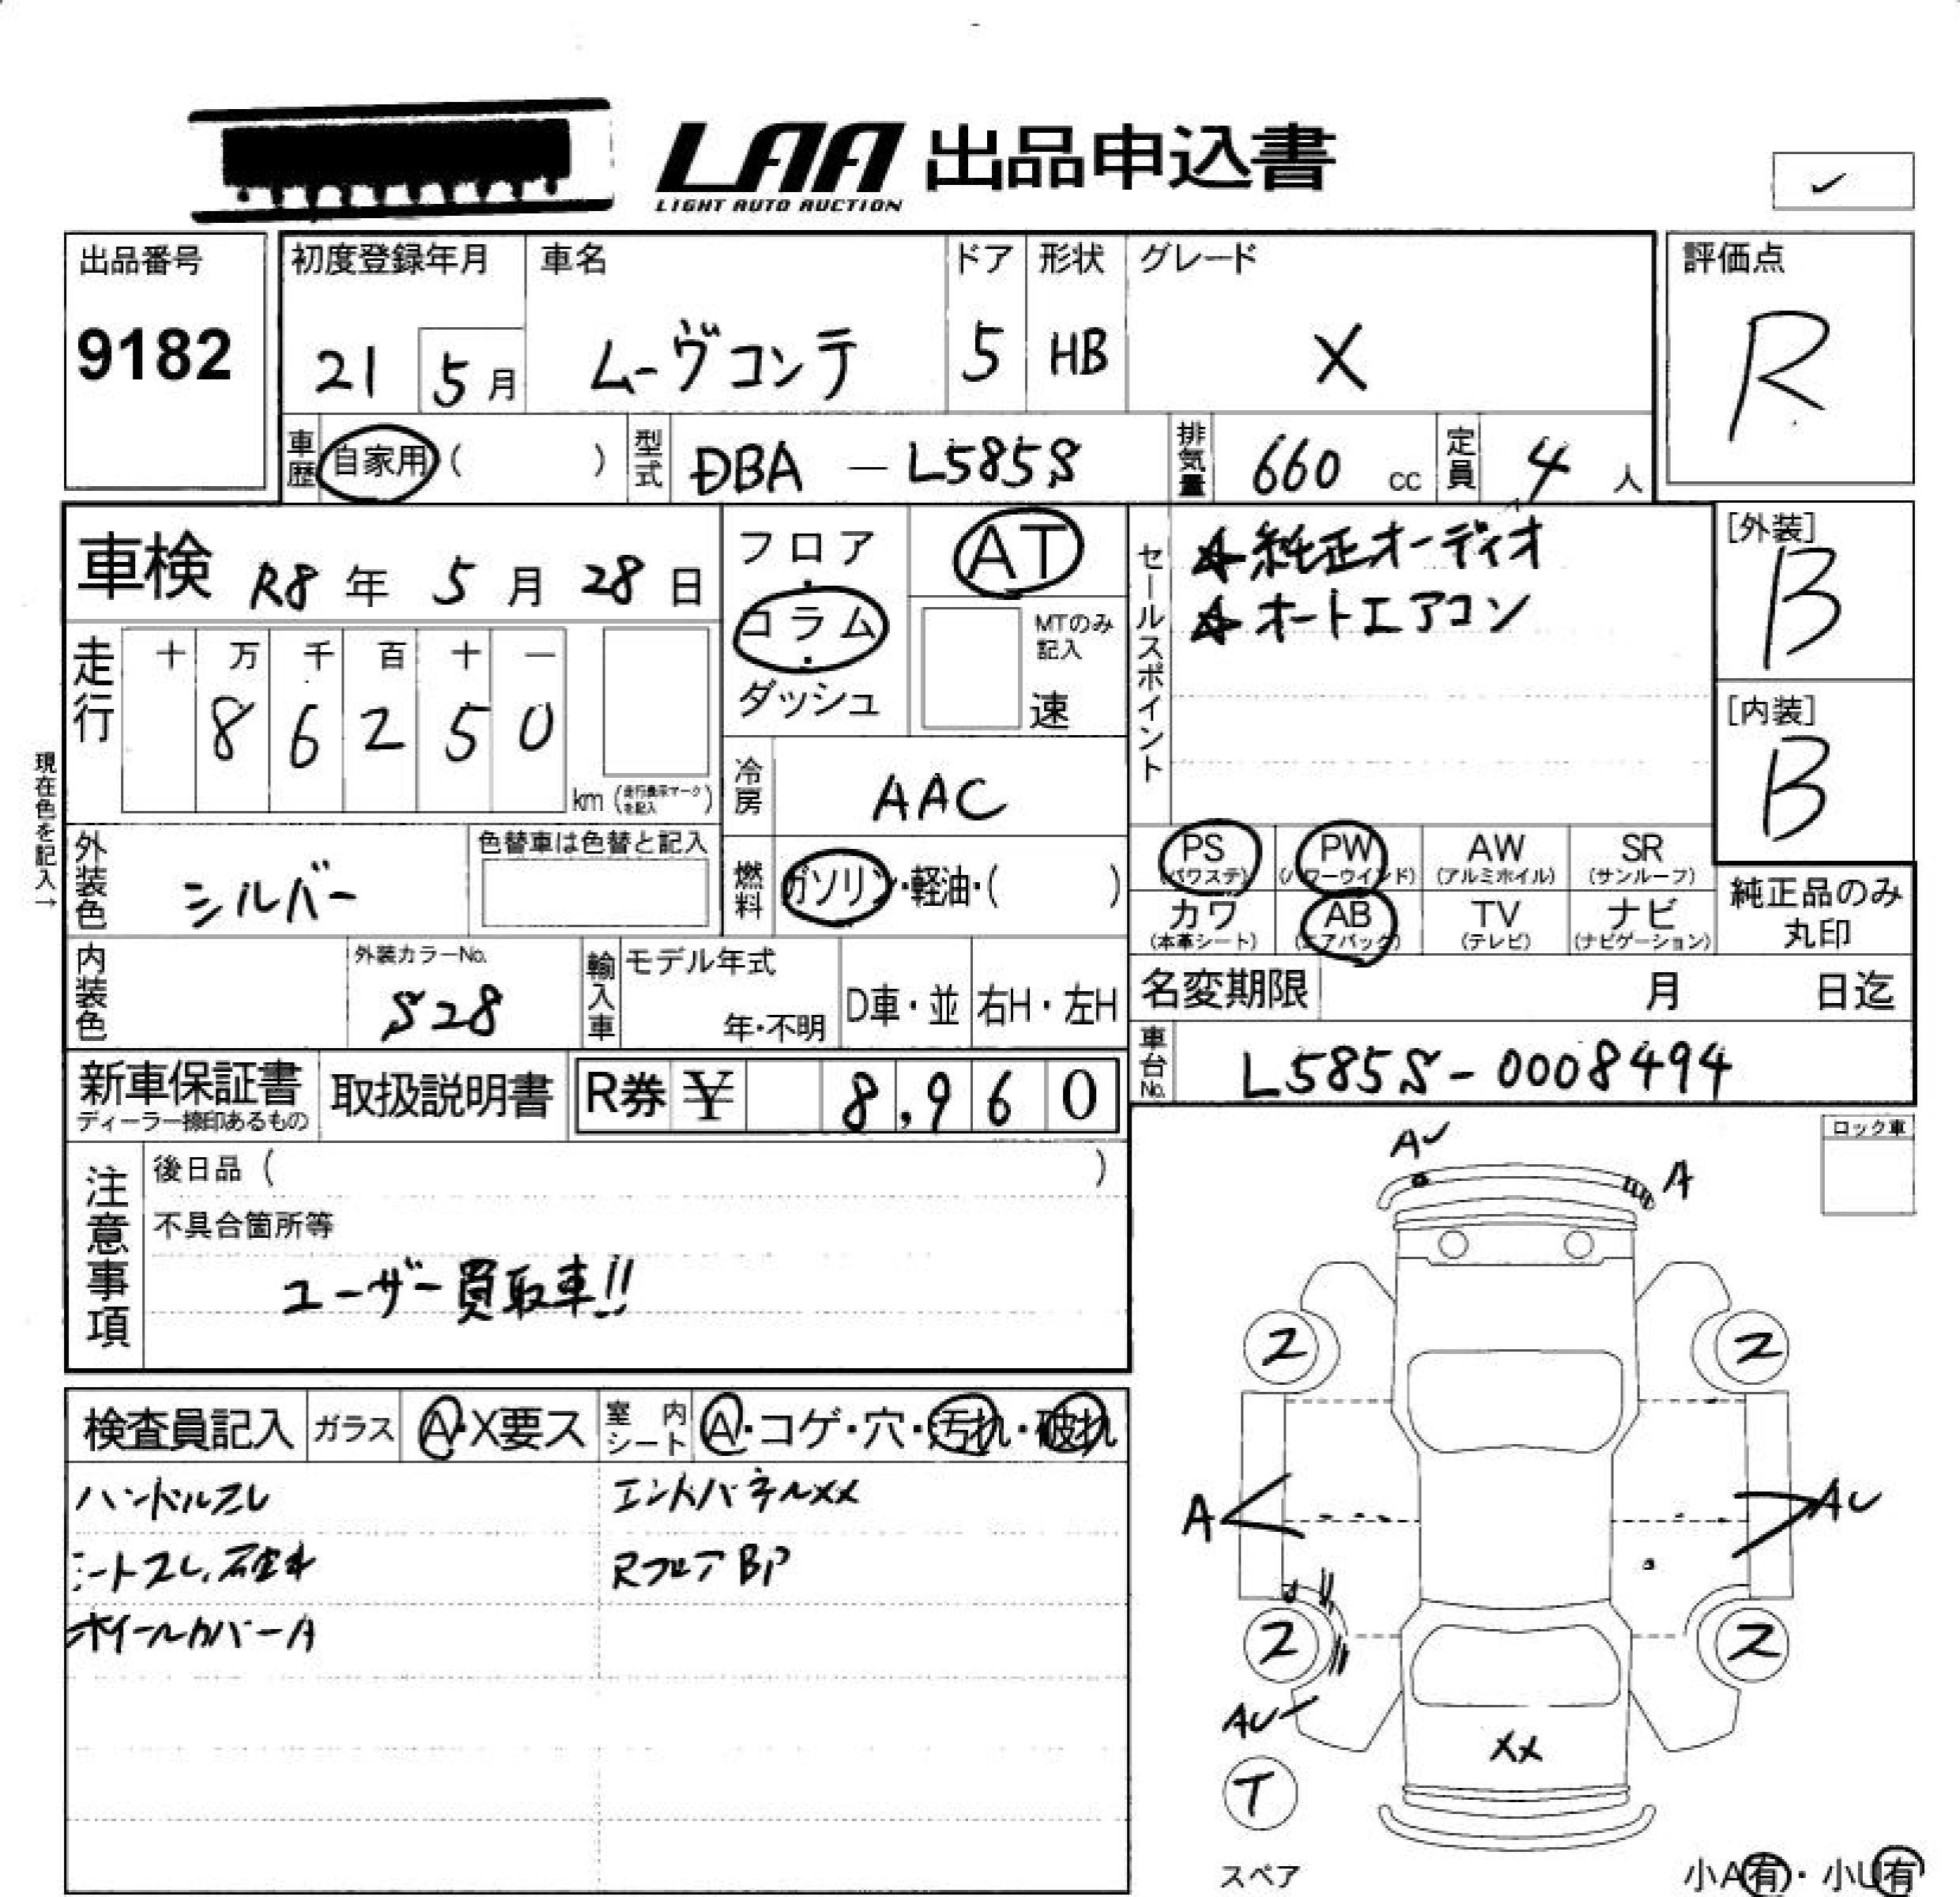 LAA 出品申込書
LIGHT AUTO AUCTION
出品番号
9182
初度登録年月 車名 ドア 形状 グレード
21 5月 ムーヴコンテ 5 HB X
評価点
R
車歴 自家用 ( ) 型式 DBA - L585S 排気量 660 cc 定員 4 人
車検 R8 年 5 月 28 日
走行 十 万 千 百 十 一
8 6 2 5 0
km (走行表示マークを記入)
現在色を記入→
フロア・コラム・ダッシュ
AT
MTのみ記入
速
冷房 AAC
燃料 ガソリン・軽油・( )
セールスポイント
☆純正オーディオ
☆オートエアコン
[外装]
B
[内装]
B
外装色 シルバー
色替車は色替と記入
PS PW AW SR
(パワステ) (パワーウインド) (アルミホイル) (サンルーフ)
カワ AB TV ナビ
(本革シート) (エアバック) (テレビ) (ナビゲーション)
純正品のみ
丸印
内装色
外装カラーNo.
S28
輸入車 モデル年式
年・不明 D車・並 右H・左H
名変期限 月 日迄
車台No. L585S-0008494
新車保証書 取扱説明書 R券 ¥ 8,960
ディーラー捺印あるもの
注意事項
後日品 ( )
不具合箇所等
ユーザー買取車!!
ロック車
検査員記入 ガラス A・X要ス 室内シート A・コゲ・穴・汚れ・破れ
ハンドルスレ エンドパネルXX
シートスレ、破れ RフロアBP
ホイールカバーA
AU A
2 2
A AU
2 2
AU
XX
T
スペア
小A有・小U有